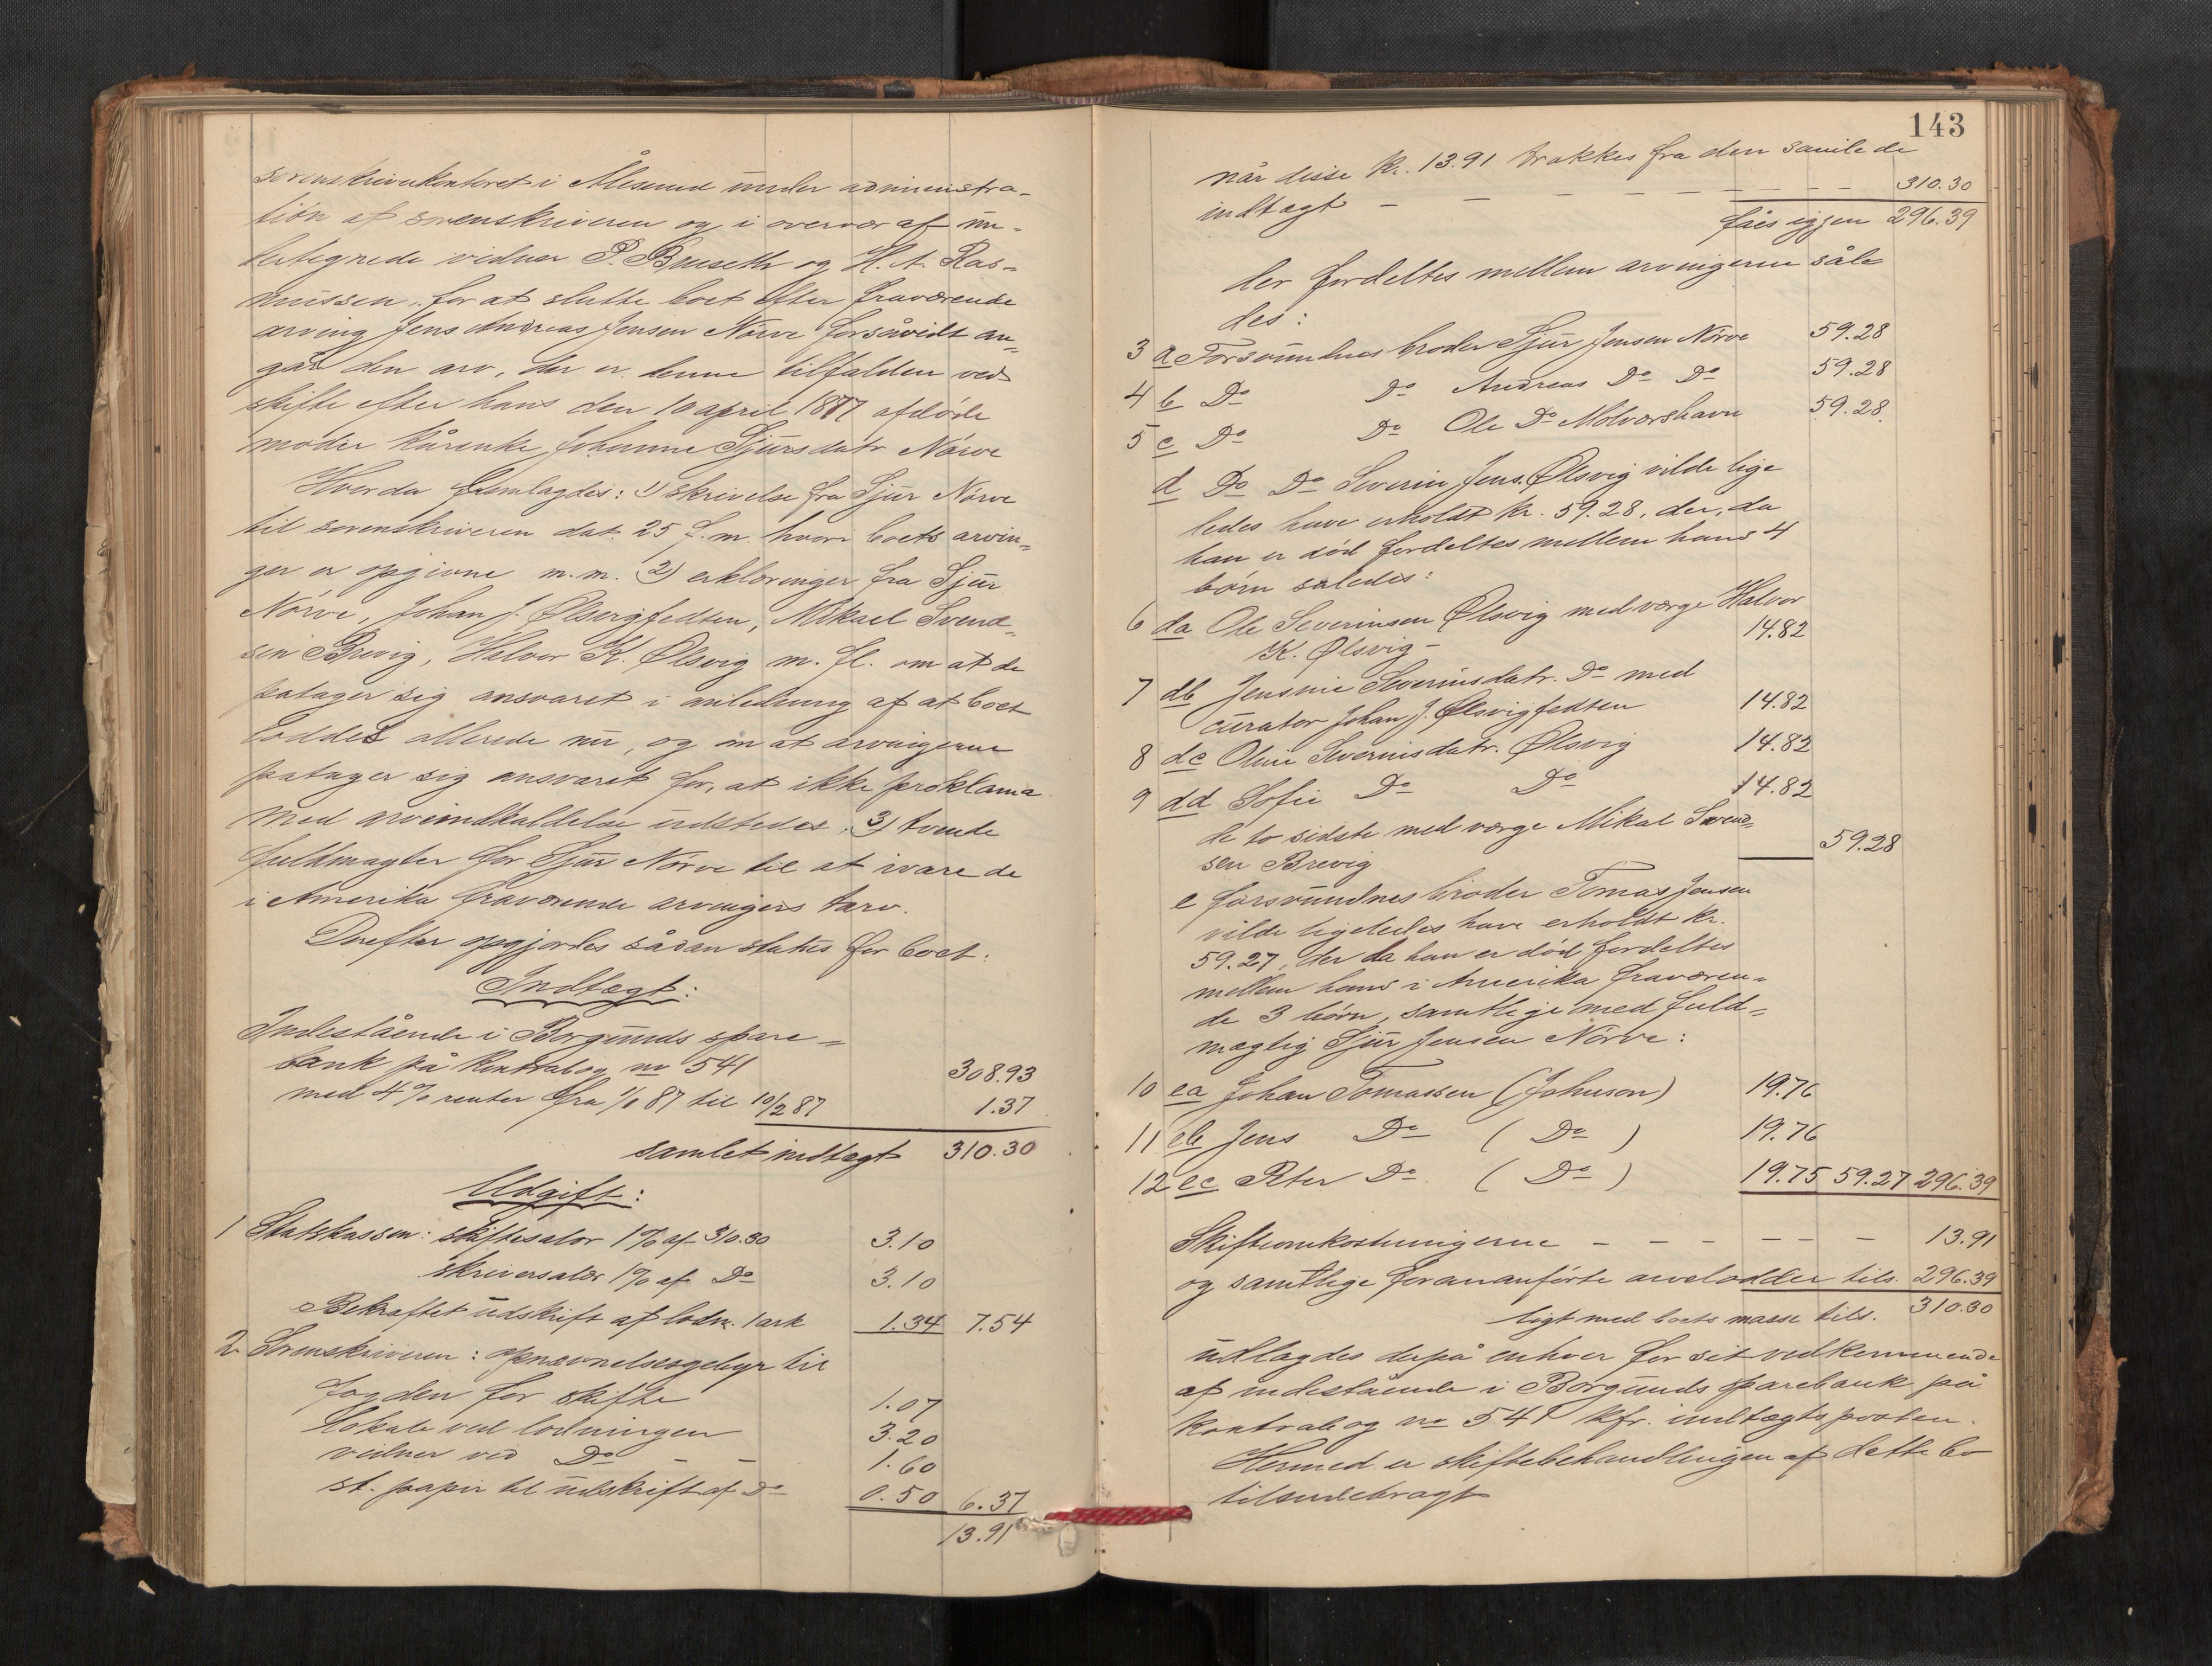 sorenskriverkontoret i Ålesund under administra-
tion af sorenskriveren og i overvær af un-
dertegnede vidner P. Bruseth og H. A. Ras-
mussen, for at slutte boet efter fraværende
arving Jens Andreas Jensen Nørve forsåvidt an-
går den arv, der er denne tilfalden ved
skifte efter hans den 10 april 1877 afdøde
moder kårenke Johanne Sjursdatr Nørve
Hvorda fremlagdes: 1) skrivelse fra Sjur Nørve
til sorenskriveren dat. 25 f. m. hvori boets arvin-
ger er opgivne m.m. 2) erklæringer fra Sjur
Nørve, Johan J. Ølsvigfedten, Mikael Svend-
sen Brevig, Halvor K. Ølsvig m. fl. om at de
påtager sig ansvaret i anledning af at boet
loddes allerede nu, og om at arvingerne
påtager sig ansvaret for, at ikke proklama
med arveindkaldelse udstedes. 3) tvende
fuldmagter for Sjur Nørve til at ivare de
i Amerika fraværende arvingers tarv.
Derefter opgjordes sådan status for boet:
Indtægt:
Indestående i Borgunds spare-
bank på kontrabog no 541 308.93
med 4% renter fra 1/1 87 til 10/2 87 1.37
samlet indtægt 310.30
Udgift:
1 Statskassen: skiftesalær 1% af 310.30 3.10
skriversalær 1% af Do 3.10
Bekræftet udskrift af lodn. 1 ark 1.34 7.54
2 Sorenskriveren: opnævnelsesgebyr til
fogden for skifte 1.07
Lokale ved lodningen 3.20
vidner ved Do - - 1.60
st. papir til udskrift af Do 0.50 6.37
13.91
143
når disse kr. 13.91 trækkes fra den samlede
indtægt - - - - - - - - 310.30
fåes igjen 296.39
der fordeltes mellem arvingerne såle
des:
3 a Forsvundnes broder Sjur Jensen Nørve 59.28
4 b Do Do Andreas Do Do 59.28
5 c Do Do Ole Do Molværshavn 59.28
d Do Do Severin Jens. Ølsvig vilde lige
ledes have erholdt kr. 59.28, der, da
han er død fordeltes mellem hans 4
børn således:
6 da Ole Severinsen Ølsvig med værge Halvor
K. Ølsvig - 14.82
7 db Jensine Severinsdatr. Do med
curator Johan J. Ølsvigfedten 14.82
8 dc Oline Severinsdatr. Ølsvig 14.82
9 dd Sofie Do Do 14.82
de to sidste med værge Mikal Svend-
sen Brevig 59.28
e forsvundnes broder Tomas Jensen
vilde ligeledes have erholdt kr.
59.27, der da han er død fordeltes
mellem hans i Amerika fraværen-
de 3 børn, samtlige med fuld-
mægtig Sjur Jensen Nørve:
10 ea Johan Tomassen (Johnson) 19.76
11 eb Jens Do ( Do ) 19.76
12 ec Peter Do ( Do ) 19.75 59.27 296.39
Skifteomkostningerne - - - - - - 13.91
og samtlige forananførte arvelodder tils. 296.39
ligt med boets masse tils. 310.30
udlagdes derpå enhver for sit vedkommende
af indestående i Borgunds sparebank på
kontrabog no 541 kfr. indtægtsposten.
Hermed er skiftebehandlingen af dette bo
tilendebragt